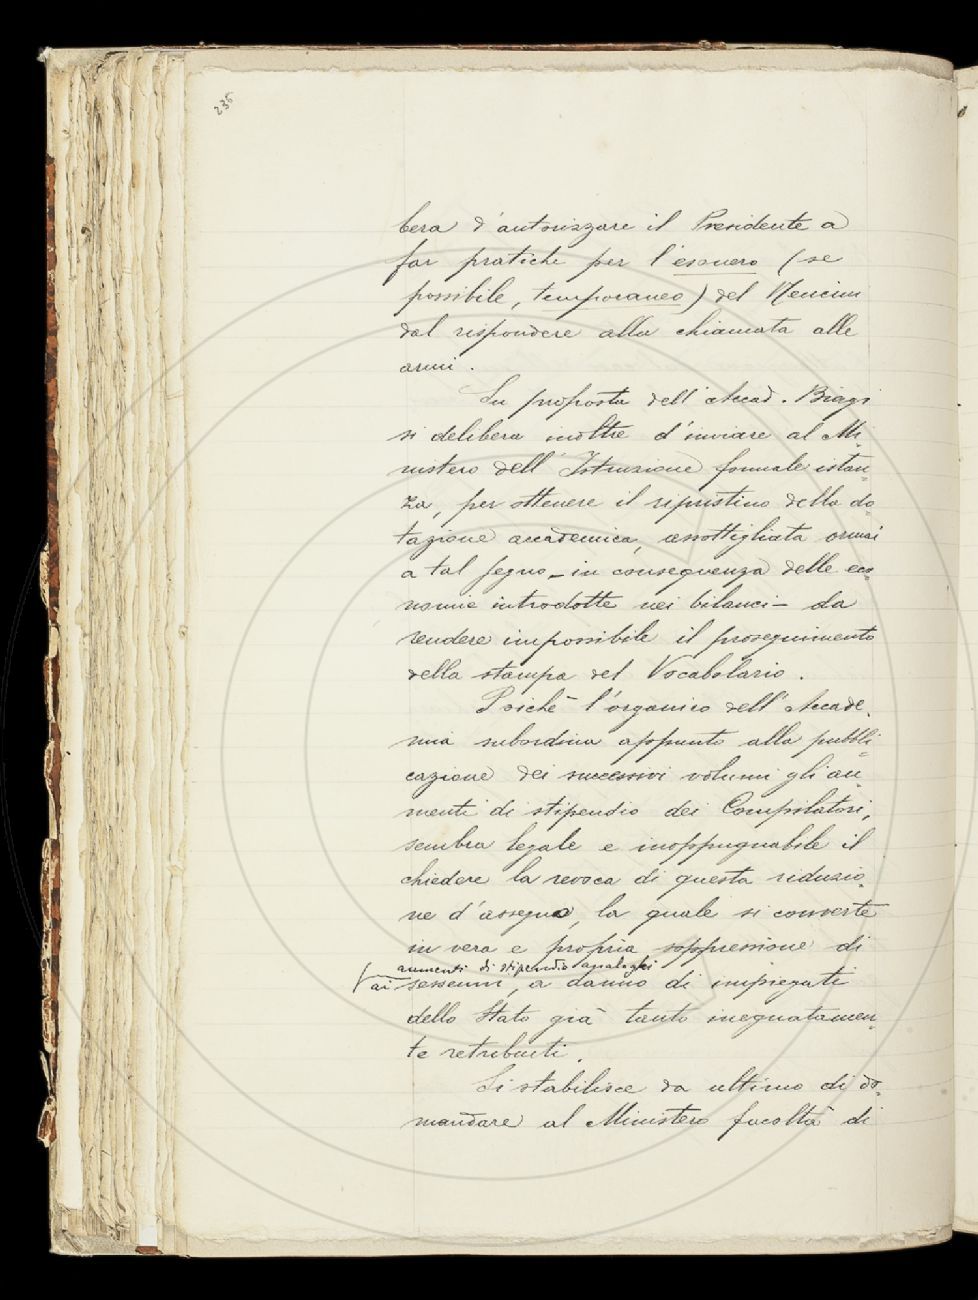 236
bera d'autorizzare il Presidente a
far pratiche per l'esonero (se
possibile, temporaneo) del Nencini
dal rispondere alla chiamata alle
armi.
Su proposta dell'Accad. Biagi
si delibera inoltre d'inviare al Mi=
nistero dell'Istruzione formale istan=
za, per ottenere il ripristino della do=
tazione accademica, assottigliata ormai
a tal segno – in conseguenza delle eco=
nomie introdotte nei bilanci – da
rendere impossibile il proseguimento
della stampa del Vocabolario.
Poichè l'organico dell'Accade=
mia subordina appunto alla pubbli=
cazione dei successivi volumi gli au=
menti di stipendio dei Compilatori,
sembra legale e inoppugnabile il
chiedere la revoca di questa riduzio=
ne d'assegno, la quale si converte
in vera e propria soppressione di
aumenti di stipendio analoghi
ai sessenni, a danno di impiegati
dello Stato già tanto ineguatamen=
te retribuiti.
Si stabilisce da ultimo di do=
mandare al Ministero facoltà di